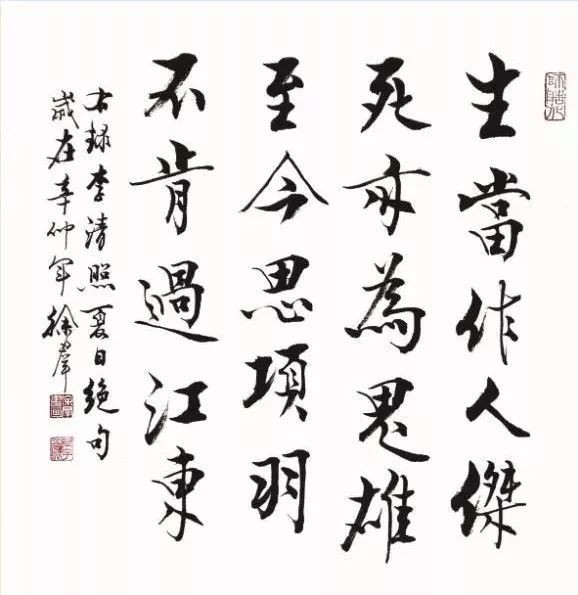 生當作人傑
死亦為鬼雄
至今思項羽
不肯過江東
右録李清照夏日絕句
歲在辛卯年徐羣